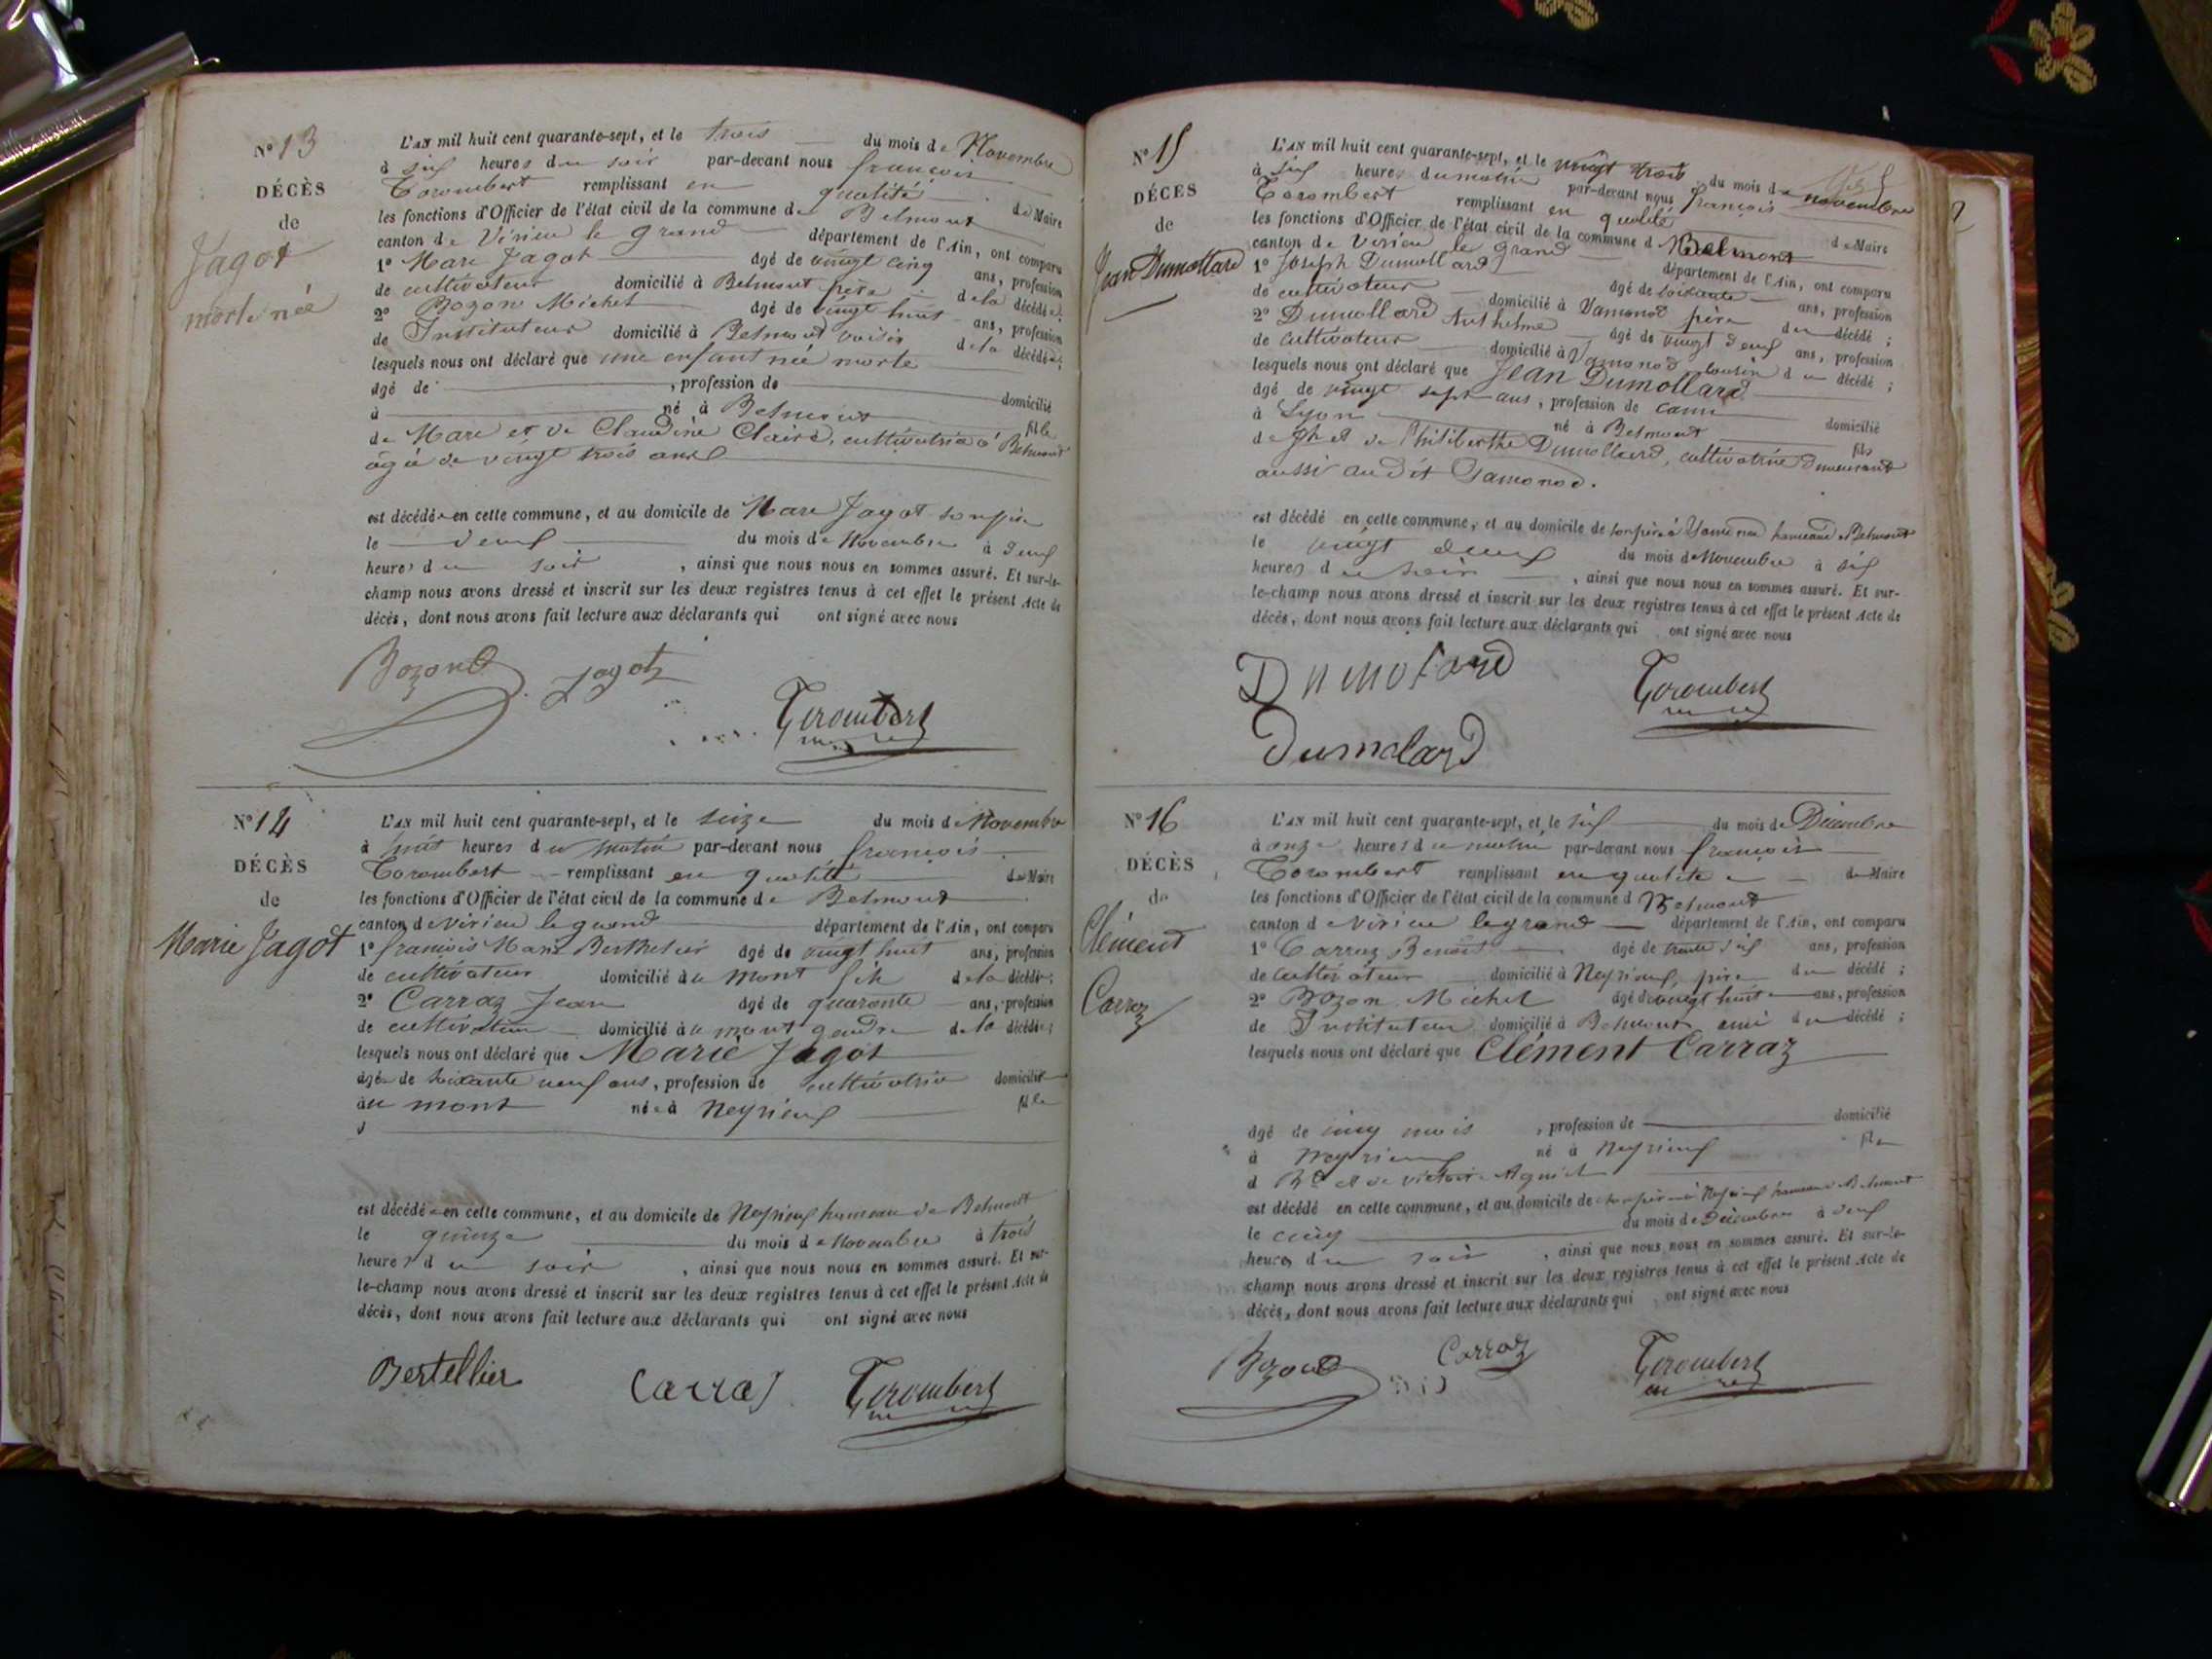 Nº 13
DÉCÈS
de
Jagot
mort-née
L'AN mil huit cent quarante-sept, et le trois du mois de Novembre
à six heures du soir par-devant nous françois
Corombert remplissant en qualité de Maire
les fonctions d'Officier de l'état civil de la commune de Belmont
canton de Virieu le grand département de l'Ain, ont comparu
1º Marc Jagot âgé de vingt cinq ans, profession
de cultivateur domicilié à Belmont père de la décédée;
2º Bozon Michel âgé de vingt huit ans, profession
de Instituteur domicilié à Belmont voisin de la décédée;
lesquels nous ont déclaré que une enfant née morte
âgé de , profession de domicilié
à né à Belmont fille
de Marc et de Claudine Claire, cultivatrice à Belmont
âgée de vingt trois ans
est décédée en cette commune, et au domicile de Marc Jagot son père
le deux du mois de Novembre à deux
heures du soir , ainsi que nous nous en sommes assuré. Et sur-le-
champ nous avons dressé et inscrit sur les deux registres tenus à cet effet le présent Acte de
décès, dont nous avons fait lecture aux déclarants qui ont signé avec nous
Bozond Jagot
Corombert
Nº 14
DÉCÈS
de
Marie Jagot
L'AN mil huit cent quarante-sept, et le seize du mois de Novembre
à huit heures du matin par-devant nous françois
Corombert remplissant en qualité de Maire
les fonctions d'Officier de l'état civil de la commune de Belmont
canton de Virieu le grand département de l'Ain, ont comparu
1º françois Marie Berthelier âgé de vingt huit ans, profession
de cultivateur domicilié au mont de la décédée;
2º Carraz Jean âgé de quarante ans, profession
de cultivateur domicilié au mont gendre de la décédée;
lesquels nous ont déclaré que Marie Jagot
âgée de soixante neuf ans, profession de cultivatrice domicilié
au mont née à Neyrieux fille
d
est décédée en cette commune, et au domicile de Neyrieux hameau de Belmont
le quinze du mois de Novembre à trois
heures du soir , ainsi que nous nous en sommes assuré. Et sur-
le-champ nous avons dressé et inscrit sur les deux registres tenus à cet effet le présent Acte de
décès, dont nous avons fait lecture aux déclarants qui ont signé avec nous
Bertellier Carraz Corombert
Nº 15
DÉCÈS
de
Jean Dumollard
L'AN mil huit cent quarante-sept, et le vingt trois du mois de novembre
à six heures du matin par-devant nous françois
Corombert remplissant en qualité de Maire
les fonctions d'Officier de l'état civil de la commune d Belmont
canton de Virieu le grand département de l'Ain, ont comparu
1º Joseph Dumollard âgé de soixante ans, profession
de cultivateur domicilié à Samonod père du décédé;
2º Dumollard Anthelme âgé de vingt deux ans, profession
de cultivateur domicilié à Samonod cousin du décédé;
lesquels nous ont déclaré que Jean Dumollard
âgé de vingt sept ans, profession de domicilié
à Lyon né à Belmont fils
de Jph et de Philiberthe Dumollard, cultivatrice demeurant
aussi au dit Samonod.
est décédé en cette commune, et au domicile de son père à Samonod hameau de Belmont
le vingt deux du mois de Novembre à six
heures du soir , ainsi que nous nous en sommes assuré. Et sur-
le-champ nous avons dressé et inscrit sur les deux registres tenus à cet effet le présent Acte de
décès, dont nous avons fait lecture aux déclarants qui ont signé avec nous
Dumolard Corombert
Dumolard
Nº 16
DÉCÈS
de
Clément
Carraz
L'AN mil huit cent quarante-sept, et le six du mois de Décembre
à onze heures du matin par-devant nous françois
Corombert remplissant en qualité de Maire
les fonctions d'Officier de l'état civil de la commune d Belmont
canton de Virieu le grand département de l'Ain, ont comparu
1º Carraz Benoit âgé de trente six ans, profession
de cultivateur domicilié à Neyrieux, père du décédé;
2º Bozon Michel âgé de vingt huit ans, profession
de Instituteur domicilié à Belmont ami du décédé;
lesquels nous ont déclaré que Clément Carraz
âgé de cinq mois , profession de domicilié
à Neyrieux né à Neyrieux fils
d Bt et de victoire
est décédé en cette commune, et au domicile de son père à Neyrieux hameau de Belmont
le cinq du mois de Décembre à deux
heures du soir , ainsi que nous nous en sommes assuré. Et sur-le-
champ nous avons dressé et inscrit sur les deux registres tenus à cet effet le présent Acte de
décès, dont nous avons fait lecture aux déclarants qui ont signé avec nous
Bozond Carraz Corombert